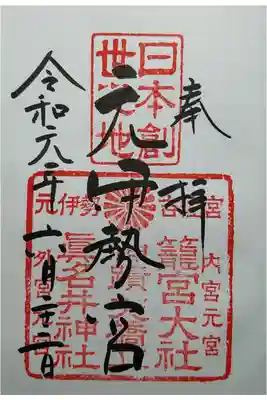 奉拝
日本創世之地
元伊勢宮
令和元年六月
元伊勢
宮
内宮元宮
籠宮大社
眞名井神社
外宮元宮